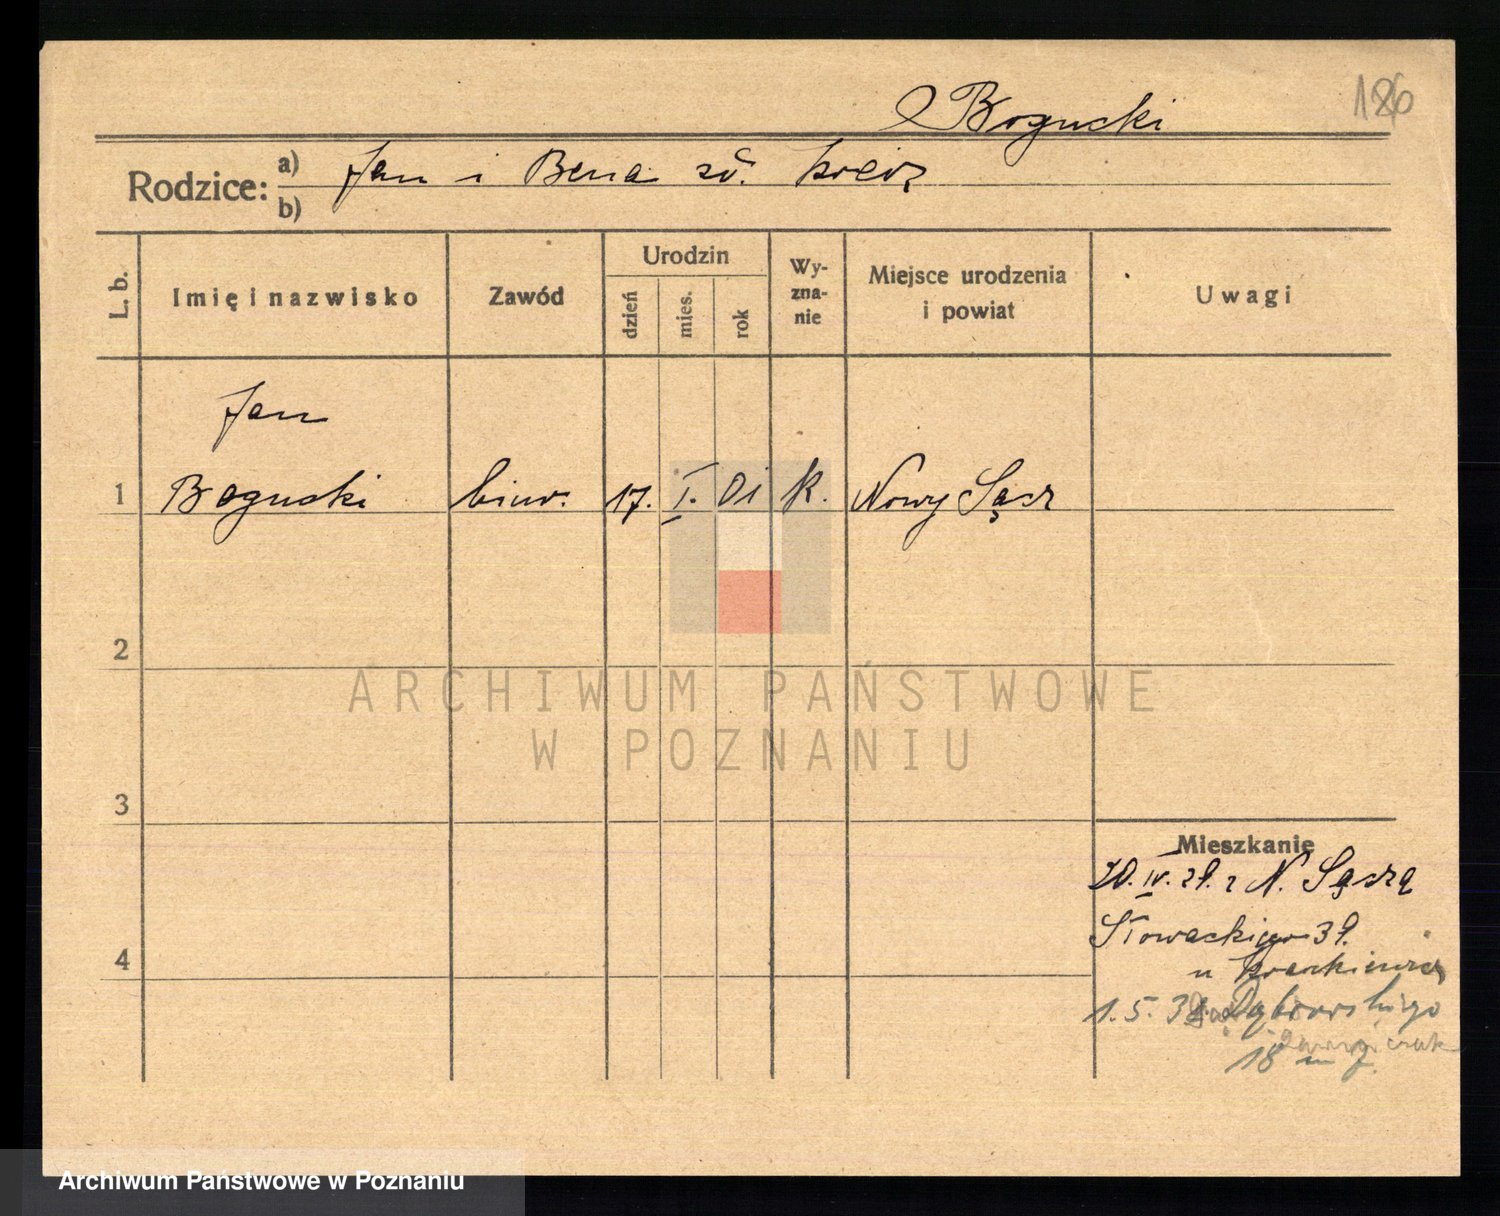 186
Bogucki
Rodzice: a) Jan i Bena
b)
L. b.
Imię i nazwisko
Zawód
Urodzin
dzień
mies.
rok
Wy-
zna-
nie
Miejsce urodzenia
i powiat
Uwagi
Jan
1 Bogucki biur. 17. I. 01 k. Nowy Sącz
2
ARCHIWUM PAŃSTWOWE
W POZNANIU
3
Mieszkanie
20. IV. 29. z N. Sącza
Słowackiego 39.
4
u
1. 5. 31. Dąbrowskiego
18 m 7.
Archiwum Państwowe w Poznaniu